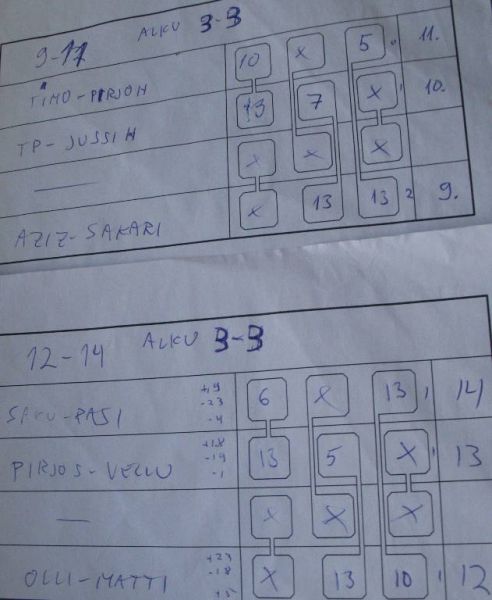 9-11 ALKU 3-3
TIMO-PIRJOH 10 X 5 11.
TP-JUSSI H 13 7 X 10.
— X X X
AZIZ-SAKARI X 13 13 2 9.
12-14 ALKU 3-3
SAKU-PASI +19 -23 -4 6 X 13 1 14
PIRJOS-VELLU +18 -19 -1 13 5 X 1 13
— X X X
OLLI-MATTI +23 -18 +5 X 13 10 1 12